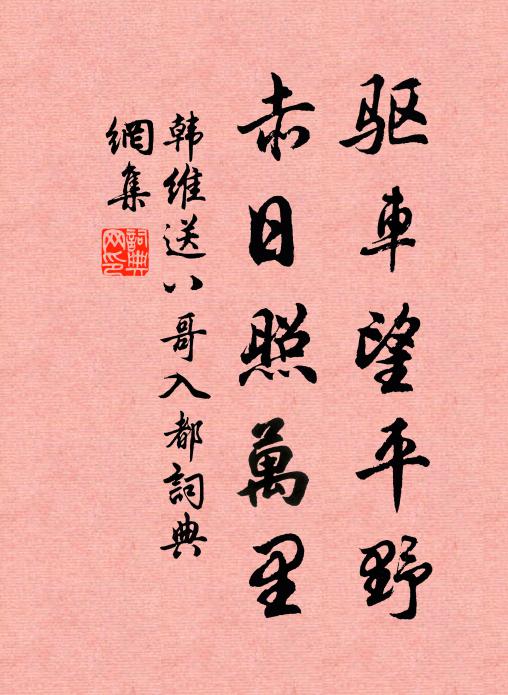 驱車望平野
赤日照萬里
韩維送八哥入都詞典
網集
詞典网印